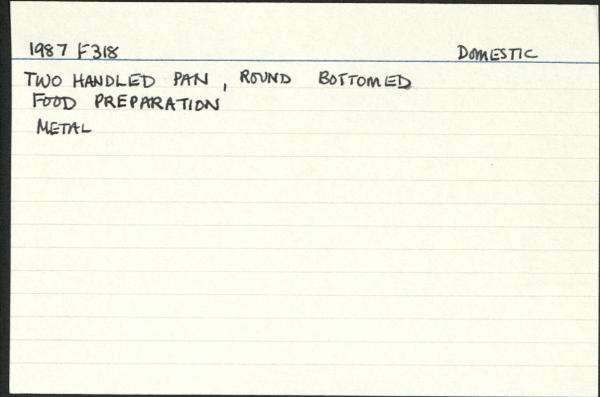 1987 F318 DOMESTIC
TWO HANDLED PAN, ROUND BOTTOMED
FOOD PREPARATION
METAL